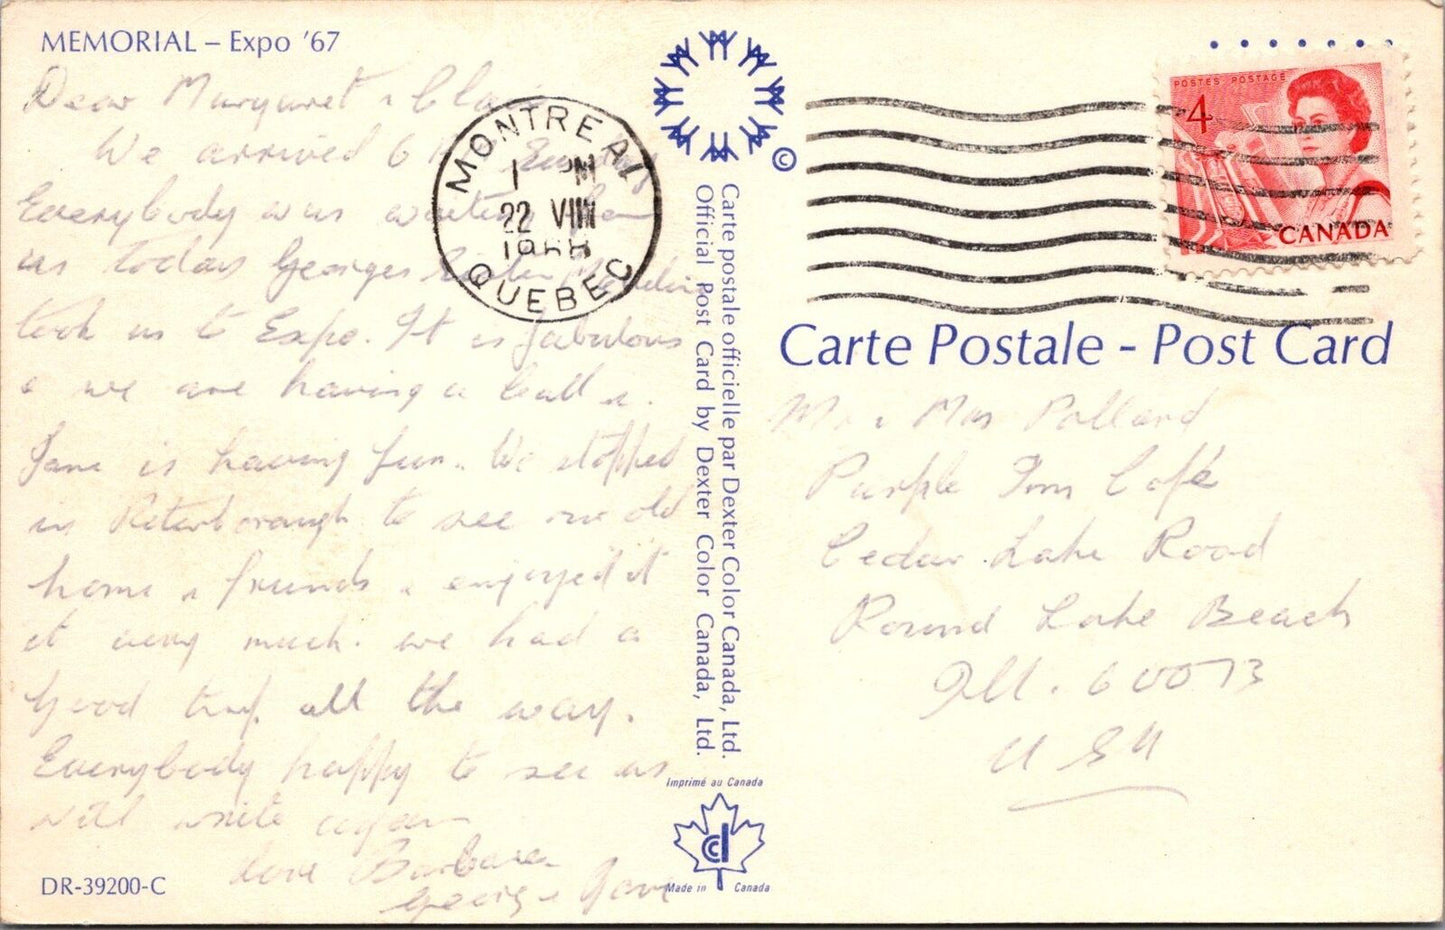 MEMORIAL – Expo '67
Dear Margaret &
We arrived 6 Sunday
Everybody was waiting
us today Georges
took us to Expo. It is fabulous
& we are having a ball &.
Jane is having fun. We stopped
in Peterborough to see our old
home & friends & enjoyed it
it very much. we had a
good trip all the way.
Everybody happy to see us
will write again
Love Barbara
George & Jane
DR-39200-C
MONTREAL
1 PM
22 VIII
QUEBEC
©
Carte postale officielle par Dexter Color Canada, Ltd.
Official Post Card by Dexter Color Canada, Ltd.
Imprimé au Canada
dc
Made in Canada
POSTES POSTAGE
4
CANADA
Carte Postale - Post Card
Mr & Mrs Pollard
Purple Inn Café
Cedar Lake Road
Round Lake Beach
Ill. 60073
USA